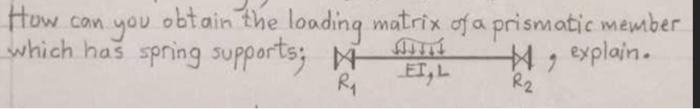 How can you obtain the loading matrix of a prismatic member
which has spring supports; EI, L , explain.
R1 R2